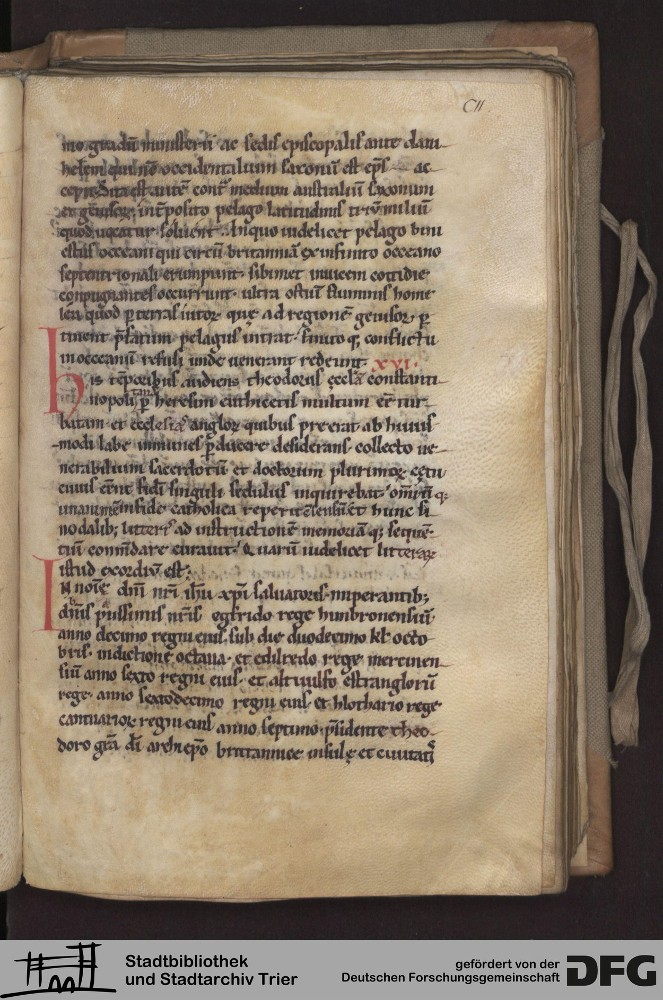 CII
mo gradū ministerii ac sedis episcopalis ante dani
helem qui nc̄ occidentalium saxonū est ep̄s ac
cepit. Sita est autē contͣ medium australiū saxonum
et geuisoꝝ, int̄posito pelago latitudinis triū miliū
quod uocatur soluente. In quo uidelicet pelago bini
estus occeani qui circū britanniā ex infinito occeano
septentrionali erumpunt. sibimet inuicem cottidie
conpugnantes occurrunt. ultra ostiū fluminis home
lea quod ꝑ terras iutoꝝ quę ad regionē geuisoꝝ ꝑ
tinent p̄fatum pelagus intrat. finitoqꝫ conflictu
in occeanū refusi unde uenerant redeunt. XXI.
His tēporibus audiens theodorus ecclā constanti
nopoli ꝑ heresim euthicetis multum eē tur
batam. et ecclesias angloꝝ quibus preerat ab huius
modi labe inmunes ꝑducere desiderans. collecto ue
nerabilium sacerdotū et doctorum plurimoꝝ cętu
cuius eēnt fidei singuli sedulus inquirebat. omniūqꝫ
unanimē in fide catholica reperit consensū. et hunc si
nodalibꝫ litteris ad instructionē memoriāqꝫ sequen
tiū cōmdare curauit. Quarū uidelicet litteraꝝ
istud exordiū est.
IN noīe dn̄i nr̄i ih̄u xp̄i saluatoris. imperantibꝫ
dn̄is piissimis nr̄is egfrido rege humbronensiū
anno decimo regni eius. sub die duodecimo kl̄ octo
bris. indictione octaua. et edilredo rege mercinen
siū anno sexto regni eius. et aldulfo estrangloꝝ
rege. anno septodecimo regni eius. et hlothario rege
cantuarioꝝ regni eius anno septimo. p̄sidente theo
doro gr̄a dī archiep̄o brittannice insulę et ciuitatis
Stadtbibliothek
und Stadtarchiv Trier
gefördert von der
Deutschen Forschungsgemeinschaft
DFG